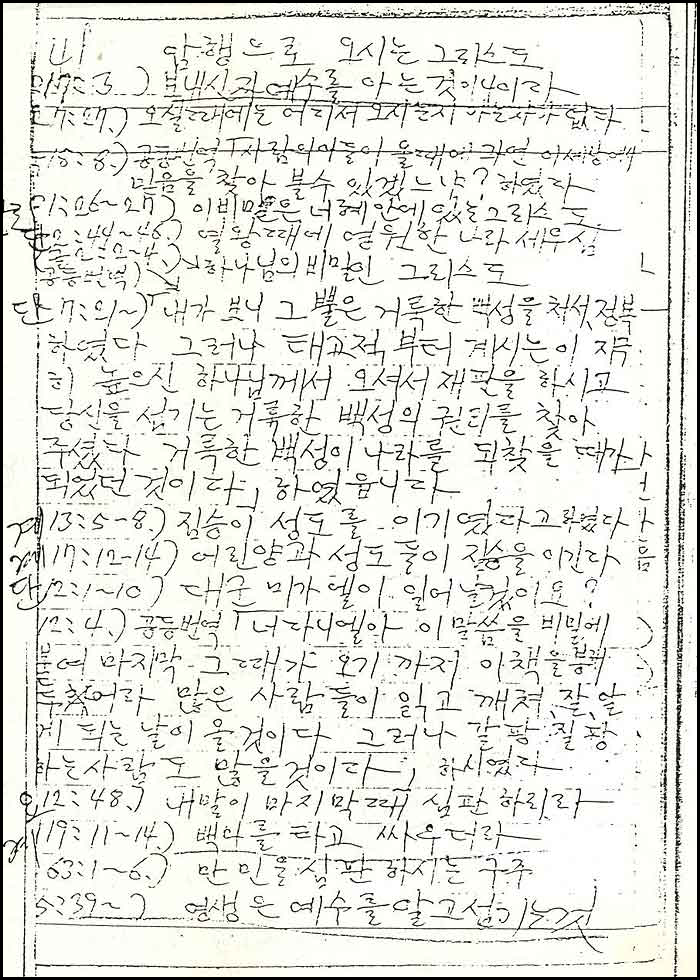 암행으로 오시는 그리스도
17:3.) 보내신자 예수를 아는것이니이라
7:27.) 오실때에는 어디서 오시는지 아는자가 없다
18:8.) 공동번역 「사람의아들이 올때에 과연 이세상에
믿음을 찾아 볼수 있겠느냐? 하였다
1:26~27) 이비밀은 너희안에 있는 그리스도
2:44~46.) 열왕때에 영원한 나라 세우심
(공동번역) 하나님의비밀인 그리스도
단 7:21~) 내가 보니 그 뿔은 거룩한 백성을 쳐서 정복
하였다 그러나 태고적부터 계시는이 지극
히 높으신 하나님께서 오셔서 재판을 하시고
당신을 섬기는 거룩한 백성의 권리를 찾아
주셨다 거룩한 백성이 나라를 되찾을 때가
되었던 것이다, 하였읍니다
계 13:5~8.) 짐승이 성도를 이기였다
계 17:12-14.) 어린양과 성도들이 짐승을 이긴다
단 12:1~10) 대군 미가엘이 일어날것이요?
12:4.) 공동번역 「너 다니엘아 이 말씀을 비밀에
붙여 마지막 그때가 오기 까지 이책을 봉해
두었어라 많은 사람들이 읽고 깨쳐 잘 알
게 되는 날이 올것이다 그러나 갈팡 질팡
하는사람도 많을것이다, 하시였다
요 12:48.) 내말이 마지막때 심판 하리라
계 19:11~14.) 백마를 타고 싸우더라
63:1~6.) 만민을 심판하시는 구주
5:39~) 영생은 예수를 알고 섬기는것